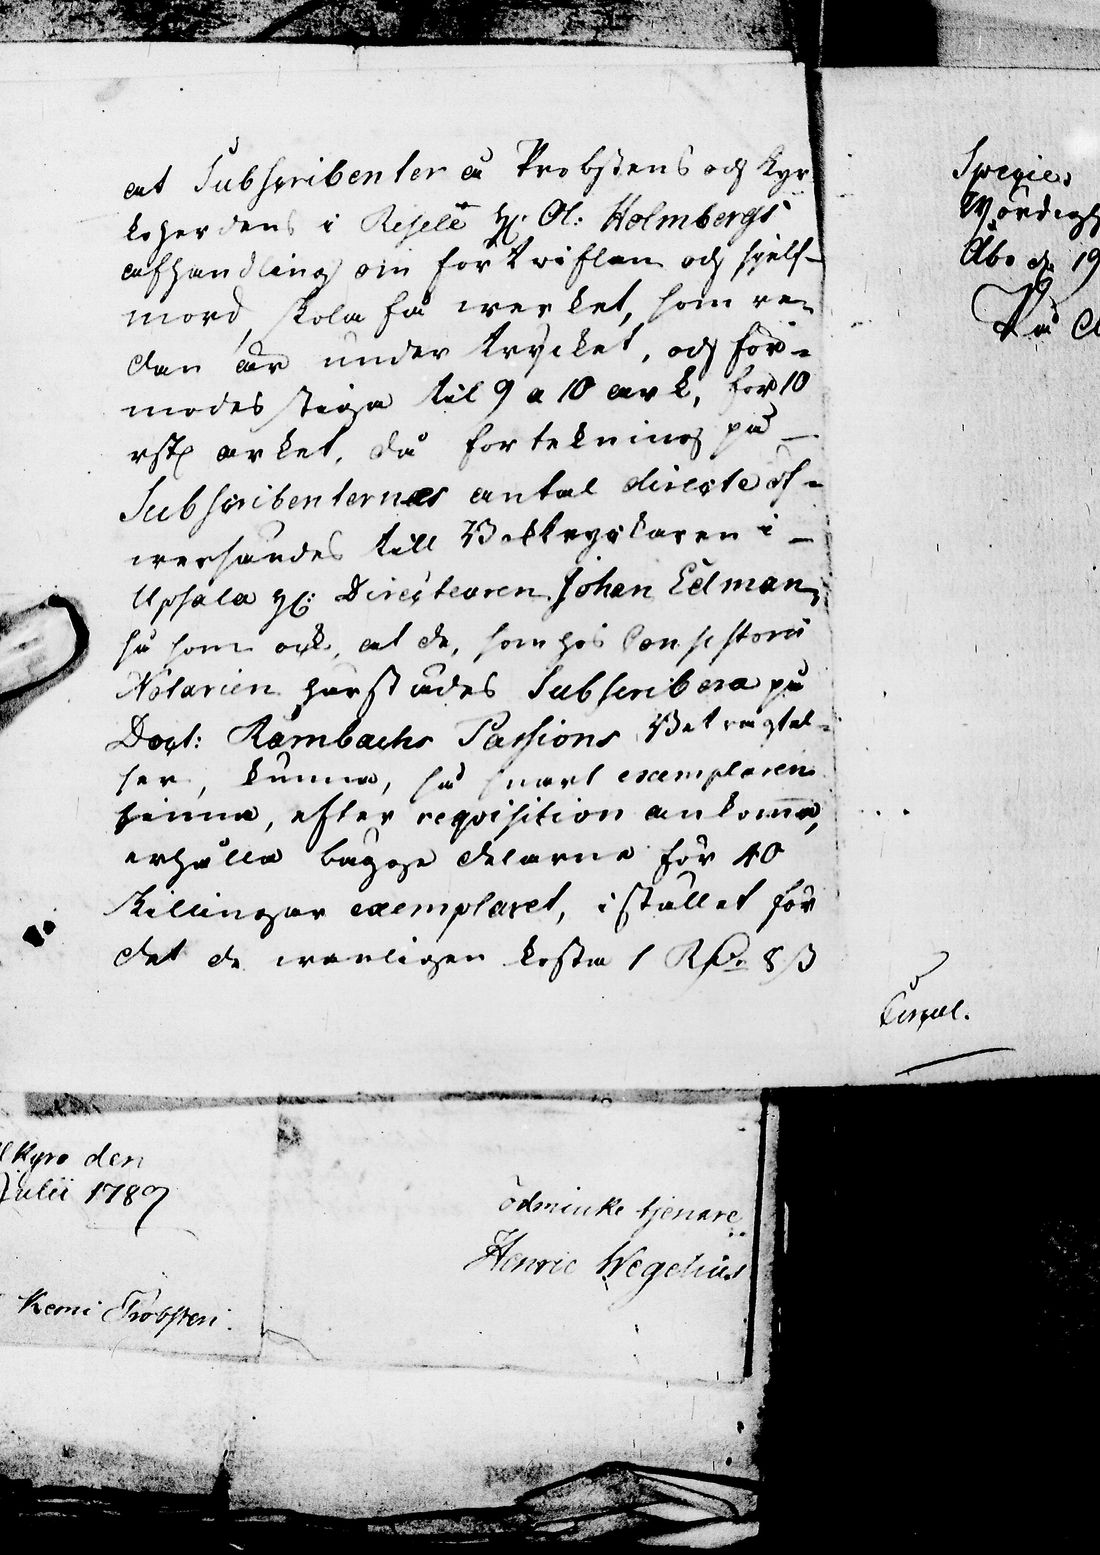 at Subscribenter å Probstens och Kyr-
koherdens i Åsele H: Ol: Holmbergs
afhandling om förtviflan och sjelf-
mord, skola få wercket, som re-
dan är under trycket, och för-
modes stiga til 9 a 10 ark, för 10
rst arket, då förtekning på
Subscribenternas antal directe öf-
wersändes till Boktryckaren i
Upsala H: Directeuren Johan Edman,
så som ock, at de, som hos Consistorii
Notarien härstädes Subscribera på
Doct: Rambachs Passions Betragtel-
ser, kunna, så snart exemplaren
hinna, efter reqvisition ankomma,
erhålla bägge delarna för 40
skillingar exemplaret, i stället för
det de wanligen kosta 1 Rd 8 ß
Kyro den
Julii 1789
ödmiuke tjenare
Henric Wegelius
Kemi Probsteri.
Åbo d. 19
På